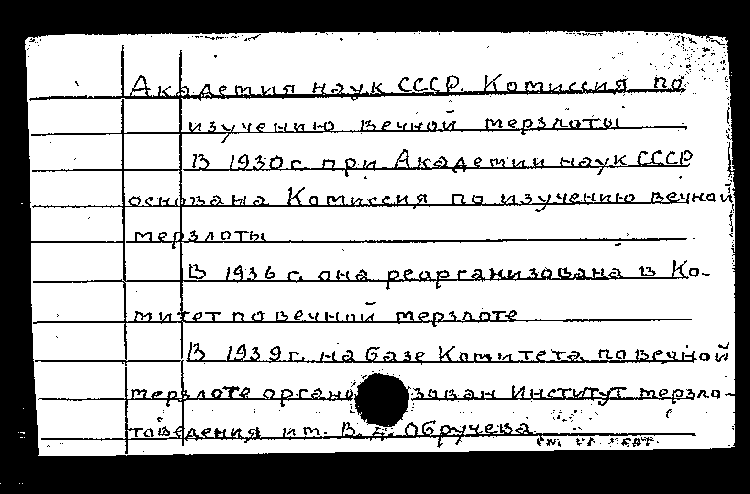 Академия наук СССР. Комиссия по
изучению вечной мерзлоты
В 1930 г. при Академии наук СССР
основана Комиссия по изучению вечной
мерзлоты
В 1936 г. она реорганизована в Ко-
митет по вечной мерзлоте
В 1939 г. на базе Комитета по вечной
мерзлоте органи зован Институт мерзло-
товедения им. В. А. Обручева
см. на